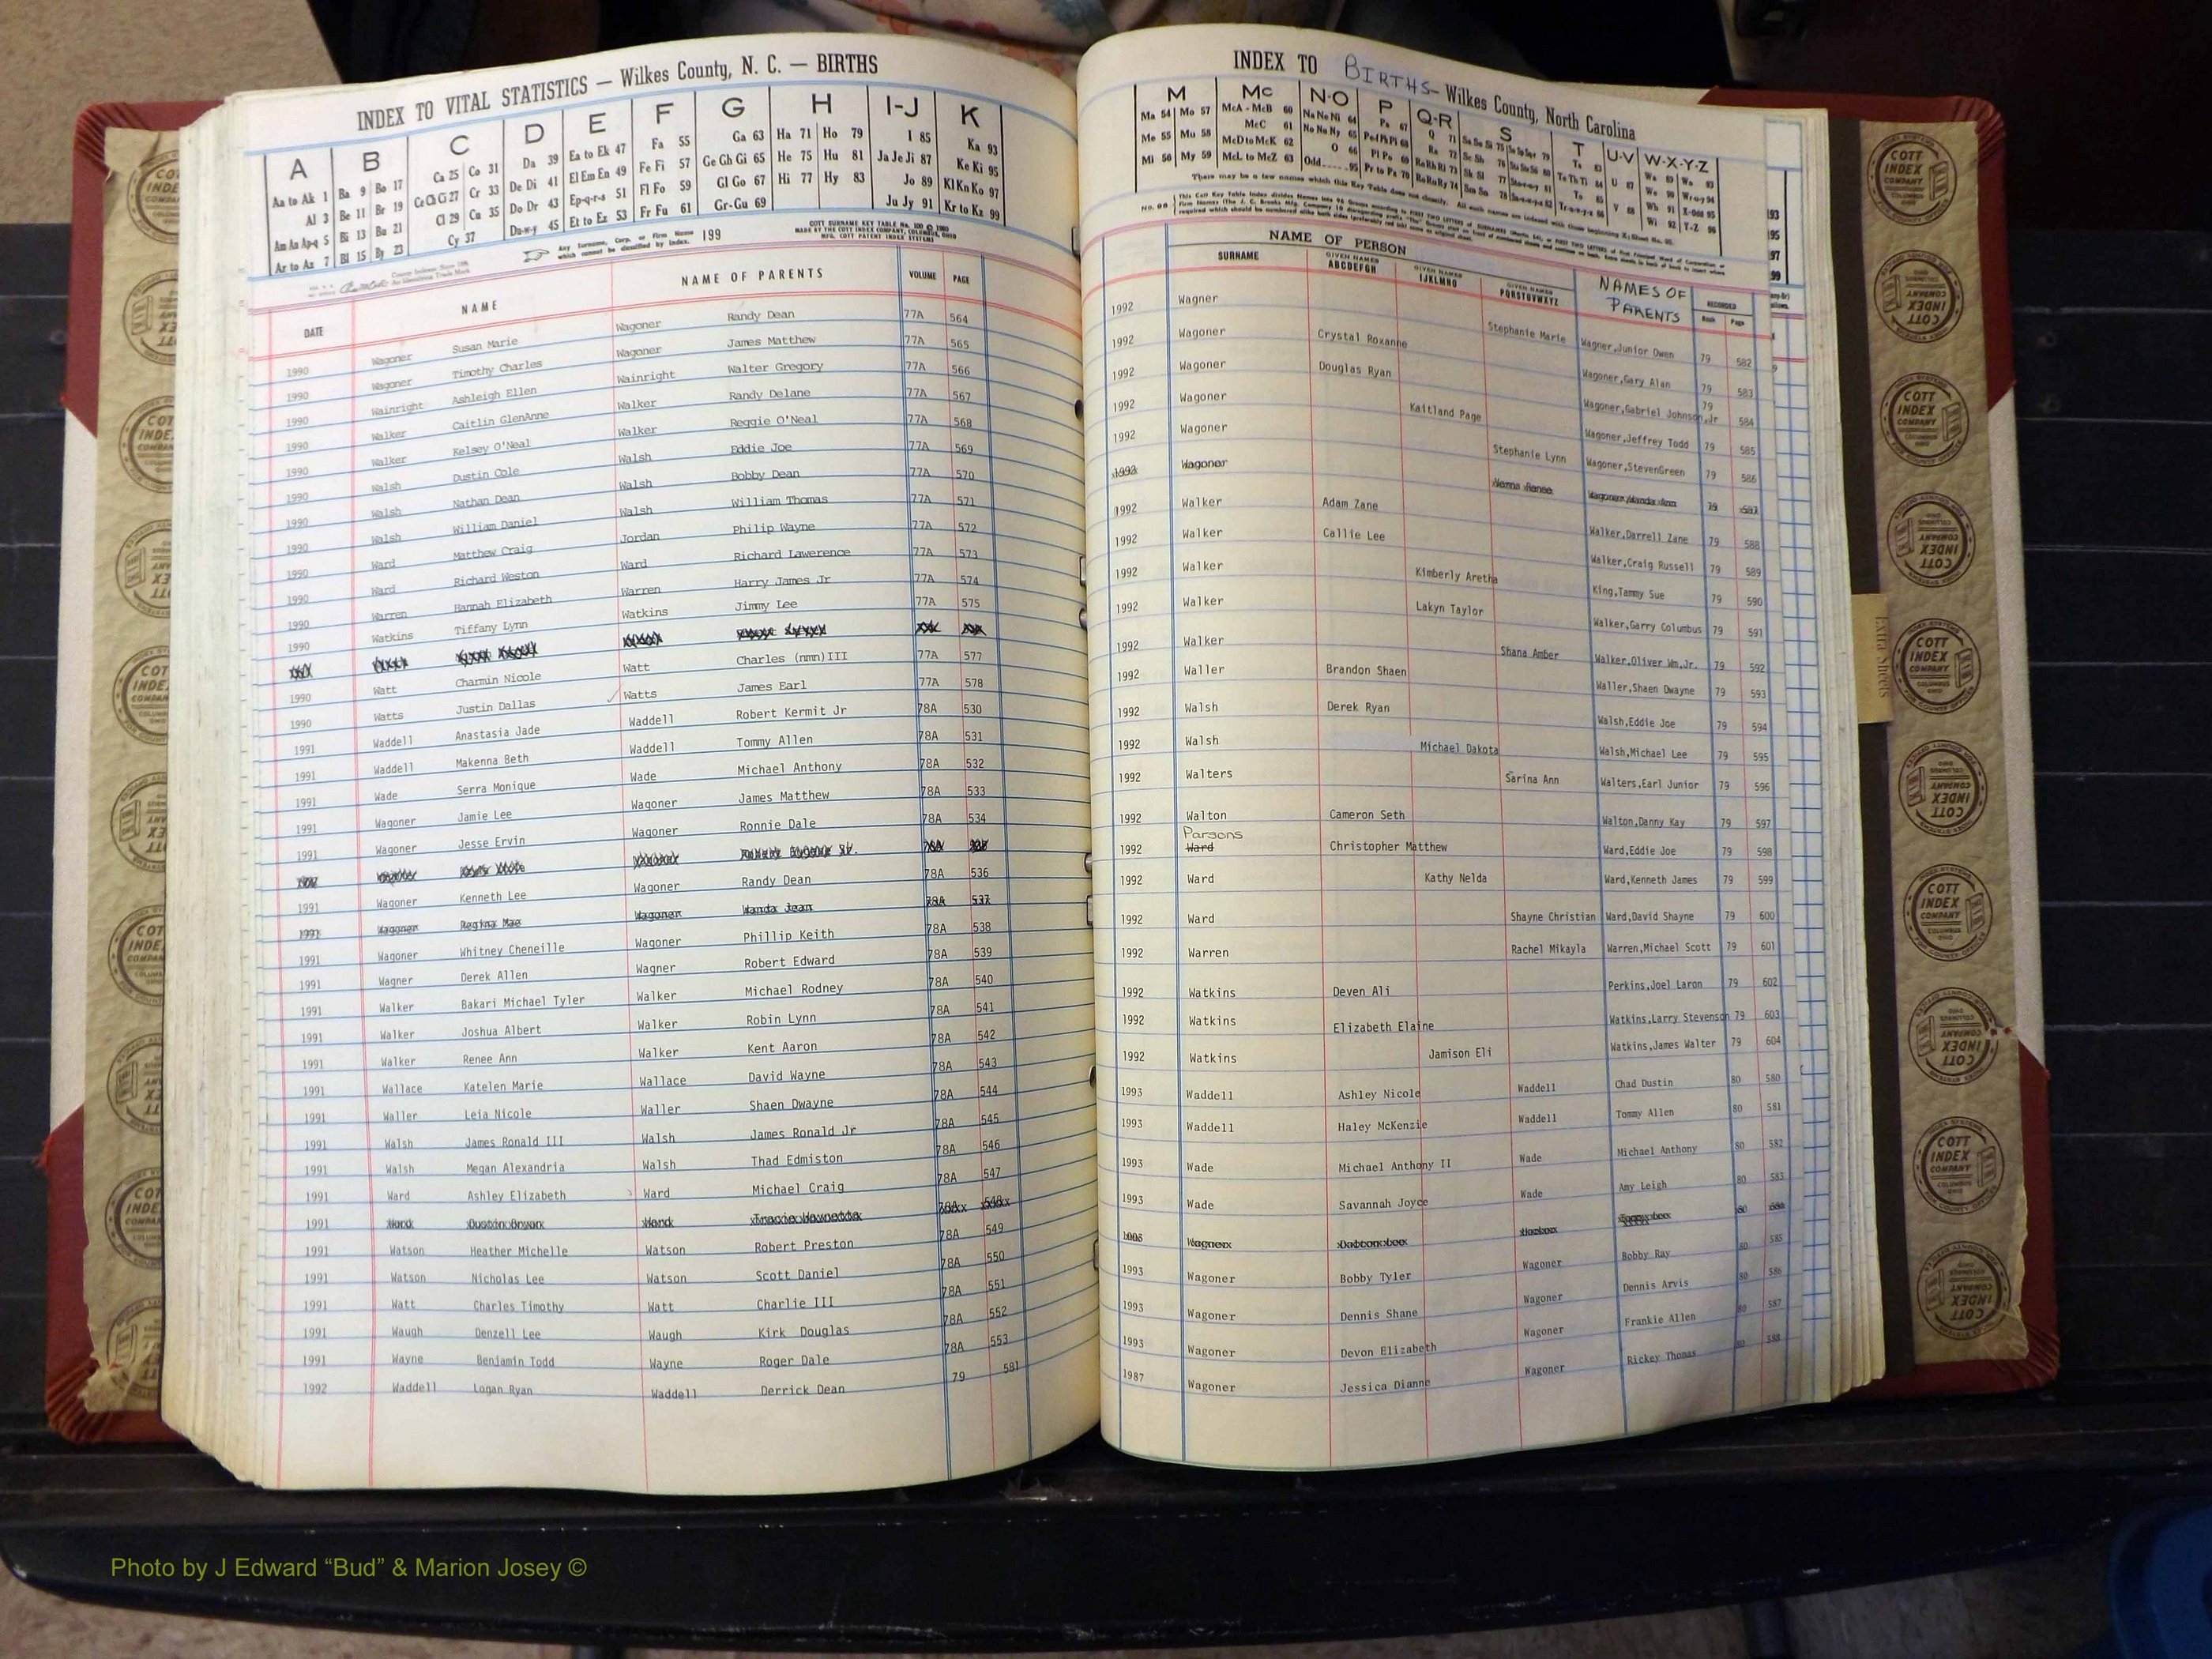 INDEX TO VITAL STATISTICS — Wilkes County, N. C. — BIRTHS
A B C D E F G H I-J K
Aa to Ak 1 Ba 9 Bo 17 Ca 25 Co 31 Da 39 Ea to Ek 47 Fa 55 Ga 63 Ha 71 Ho 79 I 85 Ka 93
Al 3 Be 11 Br 19 Ce Ch Ci 27 Cr 33 De Di 41 El Em En 49 Fe Fi 57 Ge Gh Gi 65 He 75 Hu 81 Ja Je Ji 87 Ke Ki 95
Am An Ap-q 5 Bi 13 Bu 21 Cl 29 Cu 35 Do Dr 43 Ep-q-r-s 51 Fl Fo 59 Gl Go 67 Hi 77 Hy 83 Jo 89 Kl Kn Ko 97
Ar to Az 7 Bl 15 By 23 Cy 37 Du-w-y 45 Et to Ez 53 Fr Fu 61 Gr-Gu 69 Ju Jy 91 Kr to Kz 99
Any Surname, Corp. or Firm Name which cannot be classified by Index. 199
DATE NAME NAME OF PARENTS VOLUME PAGE
1990 Wagoner Susan Marie Wagoner Randy Dean 77A 564
1990 Wagoner Timothy Charles Wagoner James Matthew 77A 565
1990 Wainright Ashleigh Ellen Wainright Walter Gregory 77A 566
1990 Walker Caitlin GlenAnne Walker Randy Delane 77A 567
1990 Walker Kelsey O'Neal Walker Reggie O'Neal 77A 568
1990 Walsh Dustin Cole Walsh Eddie Joe 77A 569
1990 Walsh Nathan Dean Walsh Bobby Dean 77A 570
1990 Walsh William Daniel Walsh William Thomas 77A 571
1990 Ward Matthew Craig Jordan Philip Wayne 77A 572
1990 Ward Richard Weston Ward Richard Lawerence 77A 573
1990 Warren Hannah Elizabeth Warren Harry James Jr 77A 574
1990 Watkins Tiffany Lynn Watkins Jimmy Lee 77A 575
1990 Watt Charmin Nicole Watt Charles (nmn)III 77A 577
1990 Watts Justin Dallas Watts James Earl 77A 578
1991 Waddell Anastasia Jade Waddell Robert Kermit Jr 78A 530
1991 Waddell Makenna Beth Waddell Tommy Allen 78A 531
1991 Wade Serra Monique Wade Michael Anthony 78A 532
1991 Wagoner Jamie Lee Wagoner James Matthew 78A 533
1991 Wagoner Jesse Ervin Wagoner Ronnie Dale 78A 534
1991 Wagoner Kenneth Lee Wagoner Randy Dean 78A 536
1991 Wagoner Regina Mae Wagoner Wanda Jean 78A 537
1991 Wagoner Whitney Cheneille Wagoner Phillip Keith 78A 538
1991 Wagner Derek Allen Wagner Robert Edward 78A 539
1991 Walker Bakari Michael Tyler Walker Michael Rodney 78A 540
1991 Walker Joshua Albert Walker Robin Lynn 78A 541
1991 Walker Renee Ann Walker Kent Aaron 78A 542
1991 Wallace Katelen Marie Wallace David Wayne 78A 543
1991 Waller Leia Nicole Waller Shaen Dwayne 78A 544
1991 Walsh James Ronald III Walsh James Ronald Jr 78A 545
1991 Walsh Megan Alexandria Walsh Thad Edmiston 78A 546
1991 Ward Ashley Elizabeth Ward Michael Craig 78A 547
1991 Ward Ward 78A 548
1991 Watson Heather Michelle Watson Robert Preston 78A 549
1991 Watson Nicholas Lee Watson Scott Daniel 78A 550
1991 Watt Charles Timothy Watt Charlie III 78A 551
1991 Waugh Denzell Lee Waugh Kirk Douglas 78A 552
1991 Wayne Benjamin Todd Wayne Roger Dale 78A 553
1992 Waddell Logan Ryan Waddell Derrick Dean 79 581
INDEX TO BIRTHS — Wilkes County, North Carolina
M Mc N-O P Q-R S T U-V W-X-Y-Z
Ma 54 Mo 57 McA - McB 60 Na Ne Ni 64 Pa 67 Q 71
Me 55 Mu 58 McC 61 No Nu Ny 65 Ra 72
Mi 56 My 59 McD to McK 62 O 66 Pl Po 69 Re Rh Ri 73
McL to McZ 63 Odd 95 Pr to Pz 70 Ro Ru Ry 74
NAME OF PERSON NAMES OF PARENTS RECORDED
SURNAME GIVEN NAMES ABCDEFGH GIVEN NAMES IJKLMNO GIVEN NAMES PQRSTUVWXYZ Book Page
1992 Wagner Stephanie Marie Wagner,Junior Owen 79 582
1992 Wagoner Crystal Roxanne Wagoner,Gary Alan 79 583
1992 Wagoner Douglas Ryan Wagoner,Gabriel Johnson,Jr 79 584
1992 Wagoner Kaitland Page Wagoner,Jeffrey Todd 79 585
1992 Wagoner Stephanie Lynn Wagoner,StevenGreen 79 586
1992 Wagoner Renee Wagoner,Wanda Ann 79 587
1992 Walker Adam Zane Walker,Darrell Zane 79 588
1992 Walker Callie Lee Walker,Craig Russell 79 589
1992 Walker Kimberly Aretha King,Tammy Sue 79 590
1992 Walker Lakyn Taylor Walker,Garry Columbus 79 591
1992 Walker Shana Amber Walker,Oliver Wm,Jr. 79 592
1992 Waller Brandon Shaen Waller,Shaen Dwayne 79 593
1992 Walsh Derek Ryan Walsh,Eddie Joe 79 594
1992 Walsh Michael Dakota Walsh,Michael Lee 79 595
1992 Walters Sarina Ann Walters,Earl Junior 79 596
1992 Walton Cameron Seth Walton,Danny Kay 79 597
Parsons
1992 Ward Christopher Matthew Ward,Eddie Joe 79 598
1992 Ward Kathy Nelda Ward,Kenneth James 79 599
1992 Ward Shayne Christian Ward,David Shayne 79 600
1992 Warren Rachel Mikayla Warren,Michael Scott 79 601
1992 Watkins Deven Ali Perkins,Joel Laron 79 602
1992 Watkins Elizabeth Elaine Watkins,Larry Stevenson 79 603
1992 Watkins Jamison Eli Watkins,James Walter 79 604
1993 Waddell Ashley Nicole Waddell Chad Dustin 80 580
1993 Waddell Haley McKenzie Waddell Tommy Allen 80 581
1993 Wade Michael Anthony II Wade Michael Anthony 80 582
1993 Wade Savannah Joyce Wade Amy Leigh 80 583
1993 Wagoner Bobby Tyler Wagoner Bobby Ray 80 585
1993 Wagoner Dennis Shane Wagoner Dennis Arvis 80 586
1993 Wagoner Devon Elizabeth Wagoner Frankie Allen 80 587
1987 Wagoner Jessica Dianne Wagoner Rickey Thomas 80 588
Extra Sheets
COTT INDEX COMPANY
Photo by J Edward “Bud” & Marion Josey ©